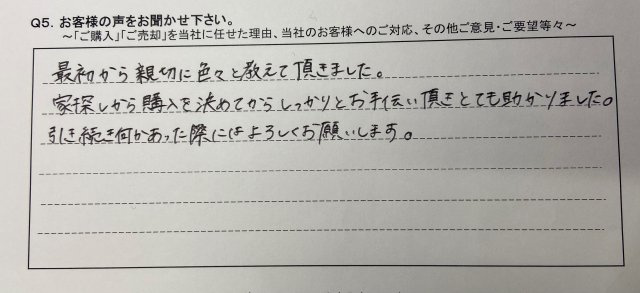 Q5. お客様の声をお聞かせ下さい。
～「ご購入」「ご売却」を当社に任せた理由、当社のお客様へのご対応、その他ご意見・ご要望等々～
最初から親切に色々と教えて頂きました。
家探しから購入を決めてからしっかりとお手伝い頂きとても助かりました。
引き続き何かあった際にはよろしくお願いします。